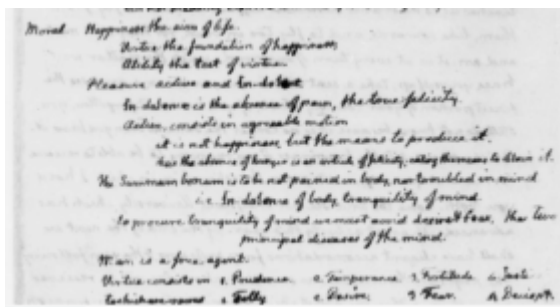 Moral. Happiness the aim of life.
Virtue the foundation of happiness,
Utility the test of virtue.
Pleasure active and Indolent.
Indolence is the absence of pain, the true felicity
Active, consists in agreeable motion
it is not happiness, but the means to produce it.
the absence of hunger is an article of felicity, eating the means to obtain it.
The Summum bonum is to be not pained in body, nor troubled in mind
i.e. Indolence of body, tranquility of mind
to procure tranquility of mind we must avoid desire & fear, the two
principal diseases of the mind.
Man is a free agent.
Virtue consists in 1. Prudence 2. Temperance 3. Fortitude 4. Justi
to which are opposed 1. Folly 2. Desire 3. Fear 4. Deceit